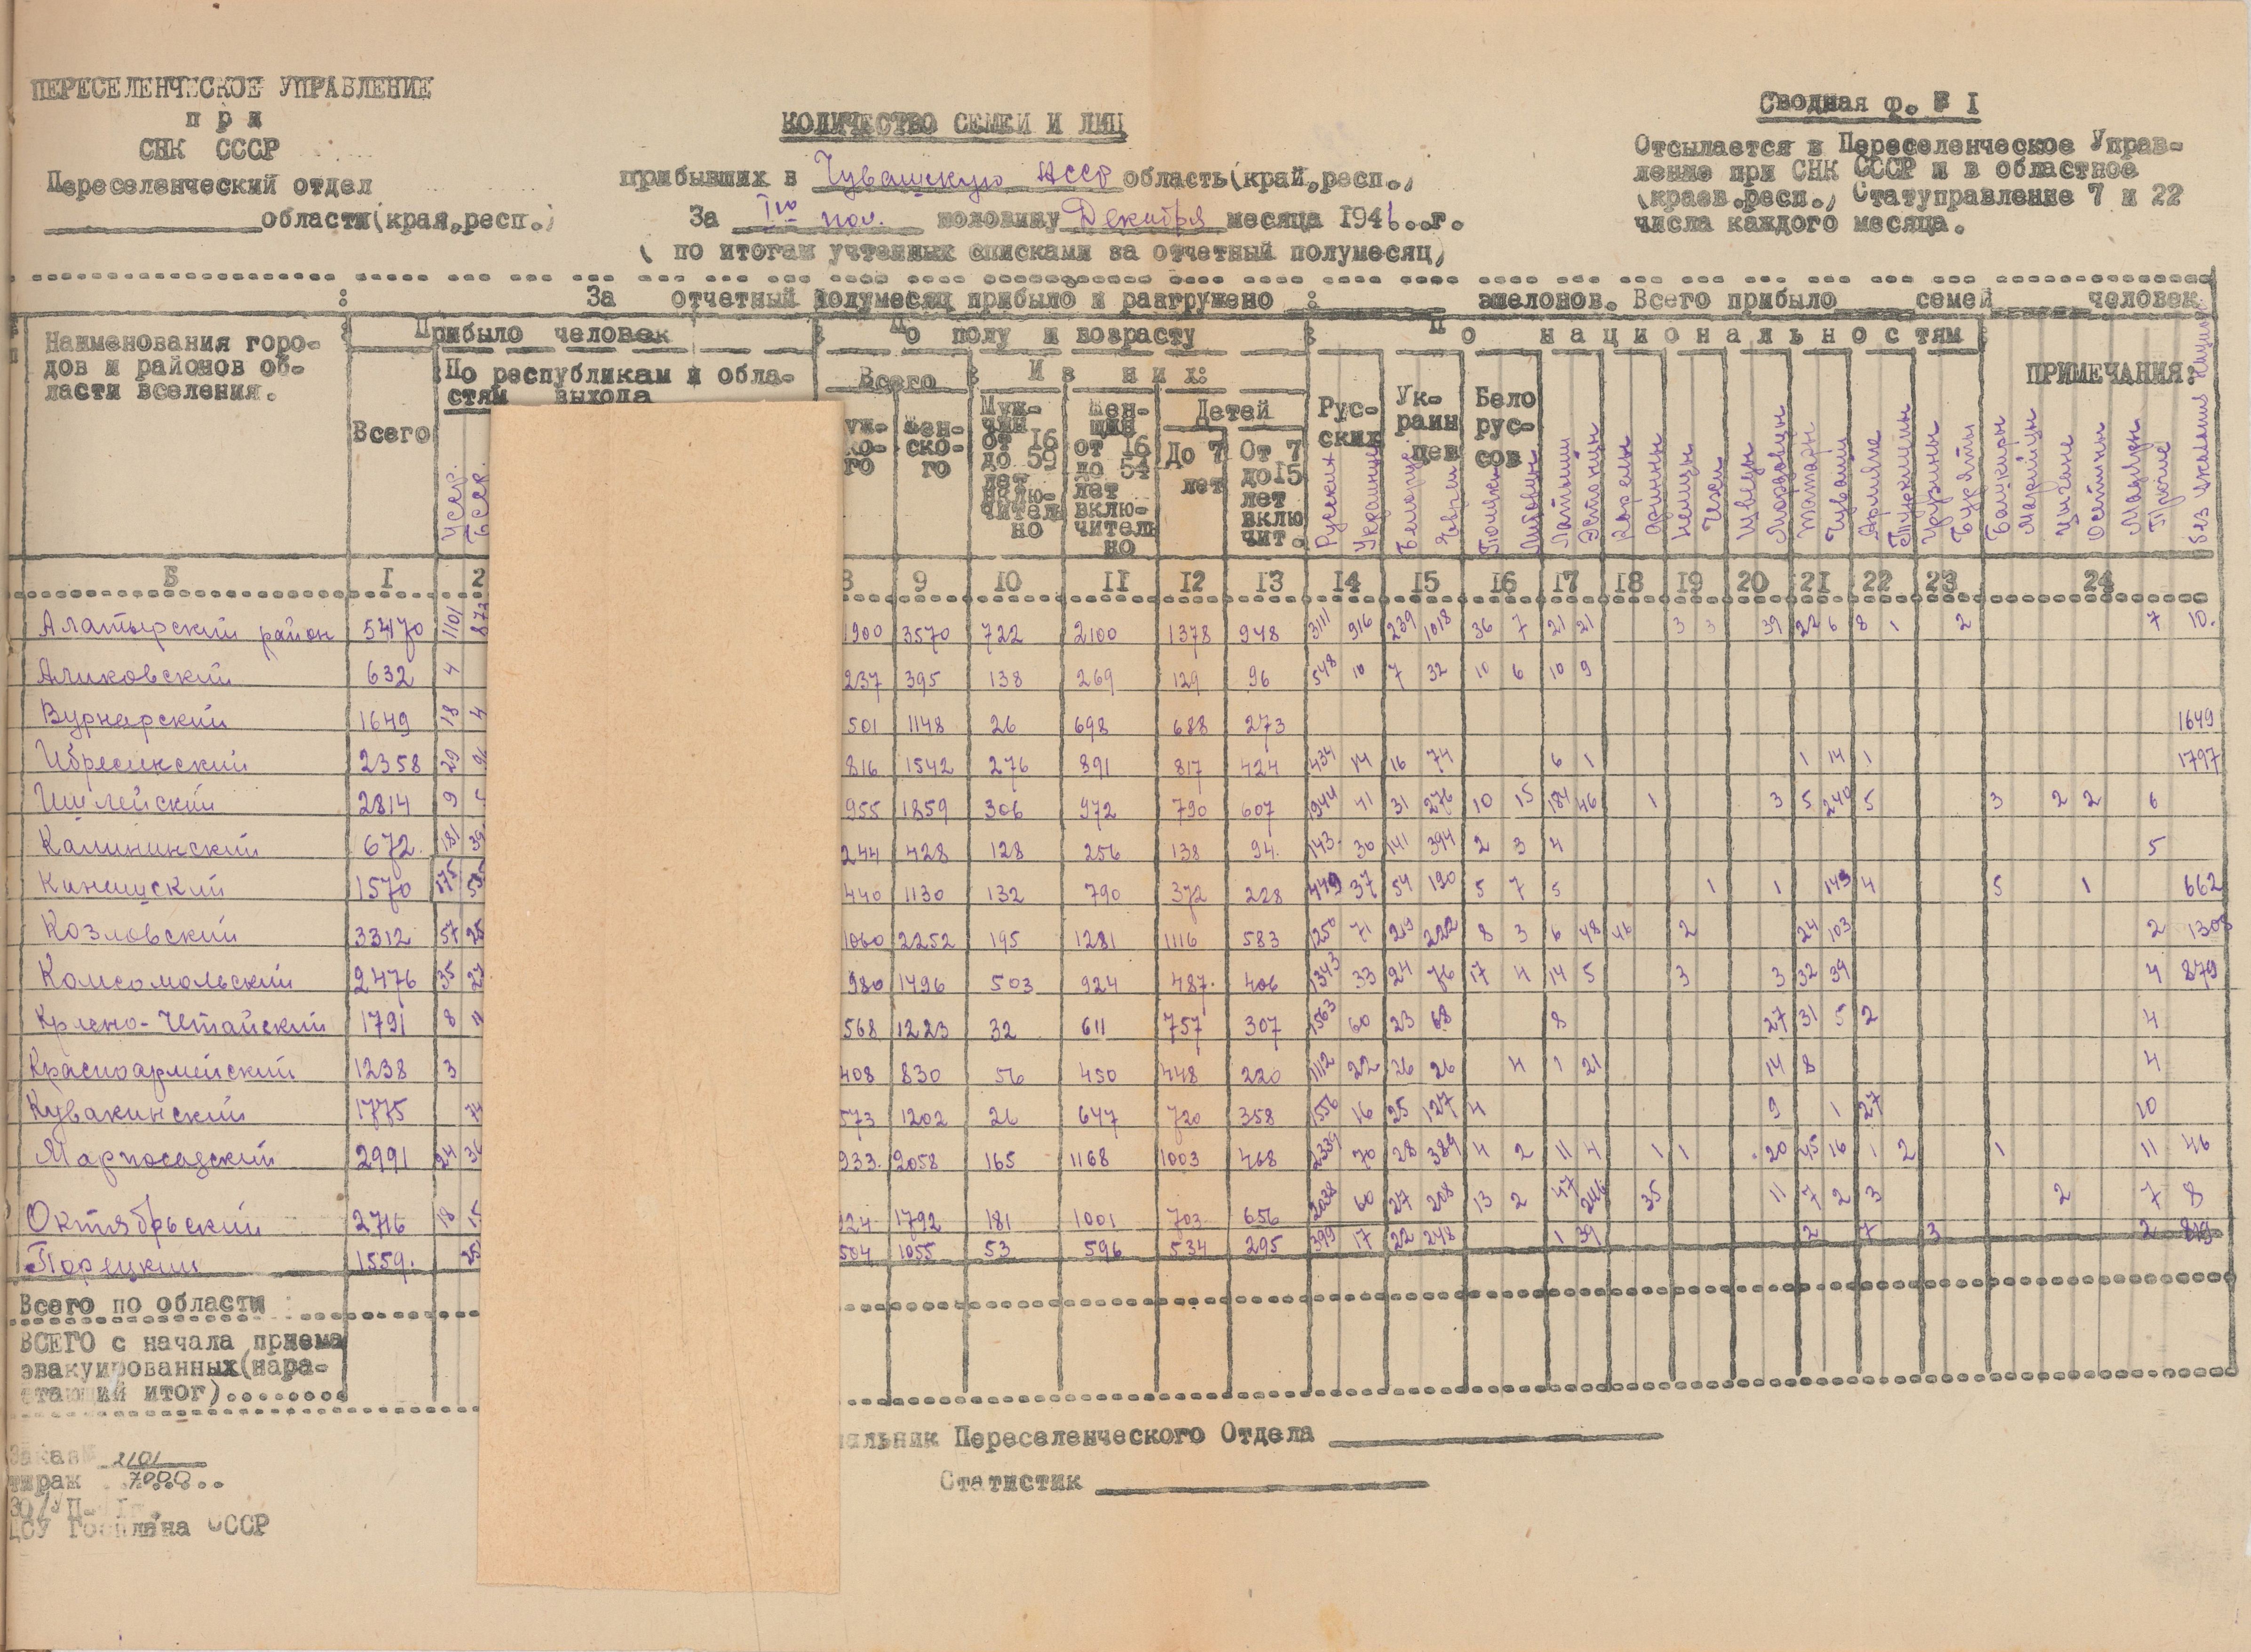 ПЕРЕСЕЛЕНЧЕСКОЕ УПРАВЛЕНИЕ
при
СНК СССР
Переселенческий отдел
области(края,респ.)
КОЛИЧЕСТВО СЕМЕЙ И ЛИЦ
прибывших в Чувашскую АССР область(край,респ.)
За Iую пол. половину Декабря месяца 1941...г.
( по итогам учтенных списками за отчетный полумесяц)
Сводная ф. № I
Отсылается в Переселенческое Управ-
ление при СНК СССР и в областное
(краев.респ.) Статуправление 7 и 22
числа каждого месяца.
За отчетный полумесяц прибыло и разгружено : эшелонов. Всего прибыло семей человек
Наименования горо-
дов и районов об-
ласти вселения.
Прибыло человек
Всего
По республикам и обла-
стям выхода
Усср.
Бсср.
По полу и возрасту
Всего
Из них:
уж-
ко-
го
Жен-
ско-
го
Муж-
чин
от 16
до 59
лет
вклю-
читель
но
Жен-
щин
от 16
до 54
лет
вклю-
читель
но
Детей
До 7
лет
От 7
до 15
лет
вклю
чит.
По национальностям
Рус-
ских
Ук-
раин
цев
Бело
рус-
сов
Русских
Украинцы
Белорусс
Евреи
Поляки
Литовцы
Латыши
Эстонцы
Карелы
Немцы
Чехи
Шведы
Мордовцы
Татары
Чуваши
Армяне
Грузины
Буряты
ПРИМЕЧАНИЯ:
Башкиры
Марийцы
Цыгане
Осетины
Мадьяры
Прочие
Без указания национ.
Б I 2 8 9 10 11 12 13 14 15 16 17 18 19 20 21 22 23 24
Алатырский район 5470 1101 872 1900 3570 722 2100 1378 948 3111 916 239 1018 36 7 21 21 3 3 39 22 6 8 1 2 7 10.
Аликовский 632 4 237 395 138 269 129 96 548 10 7 32 10 6 10 9
Вурнарский 1649 18 4 501 1148 26 698 688 273 1649
Ибресинский 2358 29 816 1542 276 891 817 424 434 14 16 74 6 1 1 14 1 1797
Ишлейский 2814 9 955 1859 306 972 790 607 944 41 31 276 10 15 184 46 1 3 5 240 5 3 2 2 6
Калининский 672. 181 39 244 428 128 256 138 94. 143 30 141 394 2 3 4 5
Канашский 1570 175 440 1130 132 790 372 228 449 37 54 190 5 7 5 1 1 149 4 5 1 662
Козловский 3312 57 25 1060 2252 195 1281 1116 583 1250 71 219 222 8 3 6 48 46 2 24 103 2 1305
Комсомольский 2476 35 27 980 1496 503 924 487. 406 1343 33 24 76 17 4 14 5 3 3 32 39 4 879
Красно-Четайский 1791 8 11 568 1223 32 611 757 307 1563 60 23 68 8 27 31 5 2 4
Красноармейский 1238 3 408 830 56 450 448 220 1112 22 26 26 4 1 21 14 8 4
Кувакинский 1775 573 1202 26 647 720 358 1556 16 25 127 4 9 1 27 10
Марпосадский 2991 24 933. 2058 165 1168 1003 468 2339 70 28 389 4 2 11 4 1 1 20 45 16 1 2 1 11 46
Октябрьский 2716 18 15 924 1792 181 1001 703 656 2038 60 27 208 13 2 47 246 35 11 7 2 3 2 7 8
Порецкий 1559. 504 1055 53 596 534 295 399 17 22 248 1 39 2 7 3 2 819
Всего по области
ВСЕГО с начала приема
эвакуированных(нара-
стающий итог)........
альник Переселенческого Отдела
Статистик
Заказ№ 2101
тираж 7000..
ЦСУ Госплана СССР